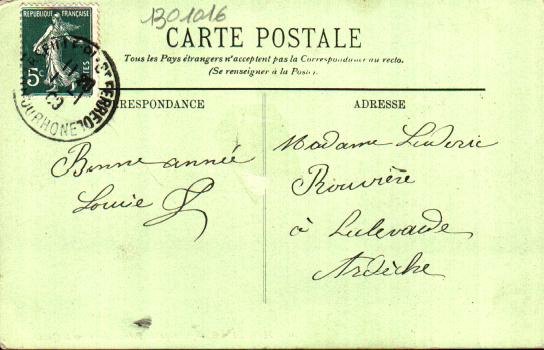 1301016
RÉPUBLIQUE FRANÇAISE
5c POSTES
CARTE POSTALE
Tous les Pays étrangers n'acceptent pas la Correspondance au recto.
(Se renseigner à la Poste)
RRESPONDANCE
ADRESSE
Bonne année
Louise
Madame
Rouvière
à
Ardèche